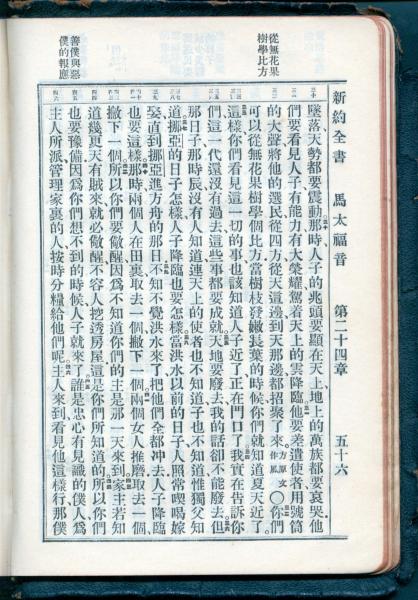 新約全書 馬太福音 第二十四章 五十六
從無花果
樹學比方
善僕與惡
僕的報應
墜落天勢都要震動那時人子的兆頭要顯在天上地上的萬族都要哀哭他
們要看見人子有能力有大榮耀駕着天上的雲降臨他要差遣使者用號筒
的大聲將他的選民從四方從天這邊到天那邊都招聚了來方原文作風〇你們
可以從無花果樹學個比方當樹枝發嫩長葉的時候你們就知道夏天近了
這樣你們看見這一切的事也該知道人子近了正在門口了我實在告訴你
們這一代還沒有過去這些事都要成就天地要廢去我的話卻不能廢去但
那日子那時辰沒有人知道連天上的使者也不知道子也不知道惟獨父知
道挪亞的日子怎樣人子降臨也要怎樣當洪水以前的日子人照常喫喝嫁
娶直到挪亞進方舟的那日不知不覺洪水來了把他們全都沖去人子降臨
也要這樣那時兩個人在田裏取去一個撇下一個兩個女人推磨取去一個
撇下一個所以你們要儆醒因為不知道你們的主是那一天來到家主若知
道幾更天有賊來就必儆醒不容人挖透房屋這是你們所知道的所以你們
也要豫備因為你們想不到的時候人子就來了誰是忠心有見識的僕人為
主人所派管理家裏的人按時分糧給他們呢主人來到看見他這樣行那僕